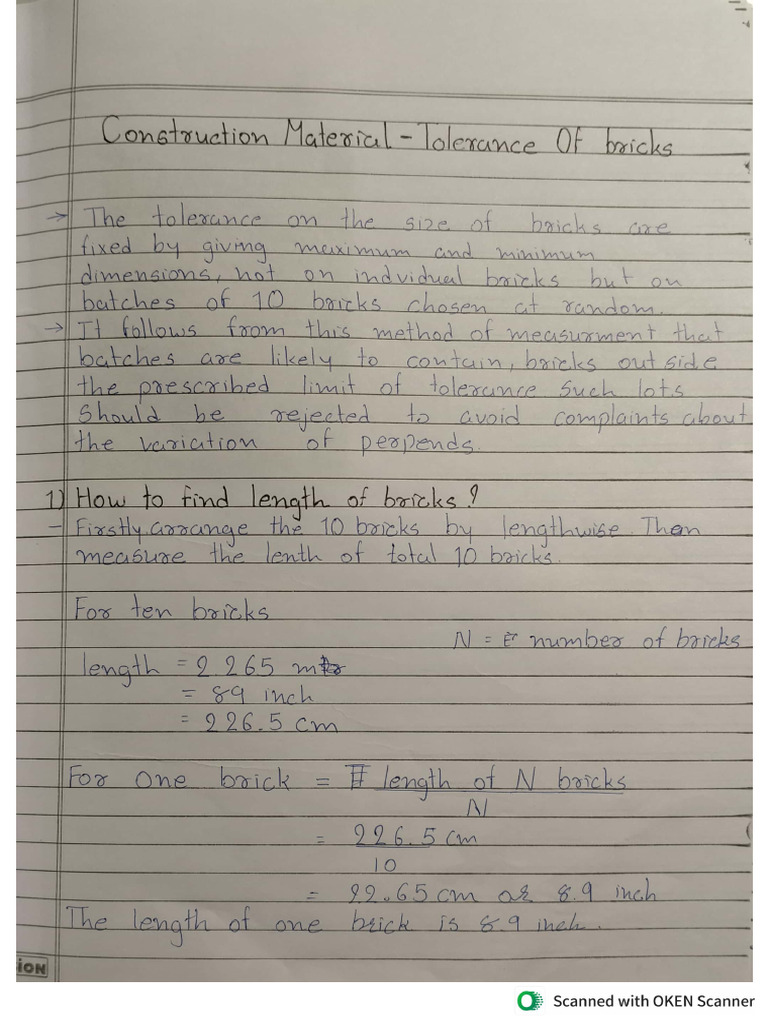 Construction Material - Tolerance Of bricks
→ The tolerance on the size of bricks are
fixed by giving maximum and minimum
dimensions, not on indvidual bricks but on
batches of 10 bricks chosen at random.
→ It follows from this method of measurment that
batches are likely to contain, bricks out side
the prescribed limit of tolerance such lots
should be rejected to avoid complaints about
the variation of perpends.
1) How to find length of bricks?
- Firstly arrange the 10 bricks by lengthwise. Then
measure the lenth of total 10 bricks.
For ten bricks
N = number of bricks
length = 2.265 m
= 89 inch
= 226.5 cm
For one brick = length of N bricks
N
= 226.5 cm
10
= 22.65 cm or 8.9 inch
The length of one brick is 8.9 inch.
iON
Scanned with OKEN Scanner